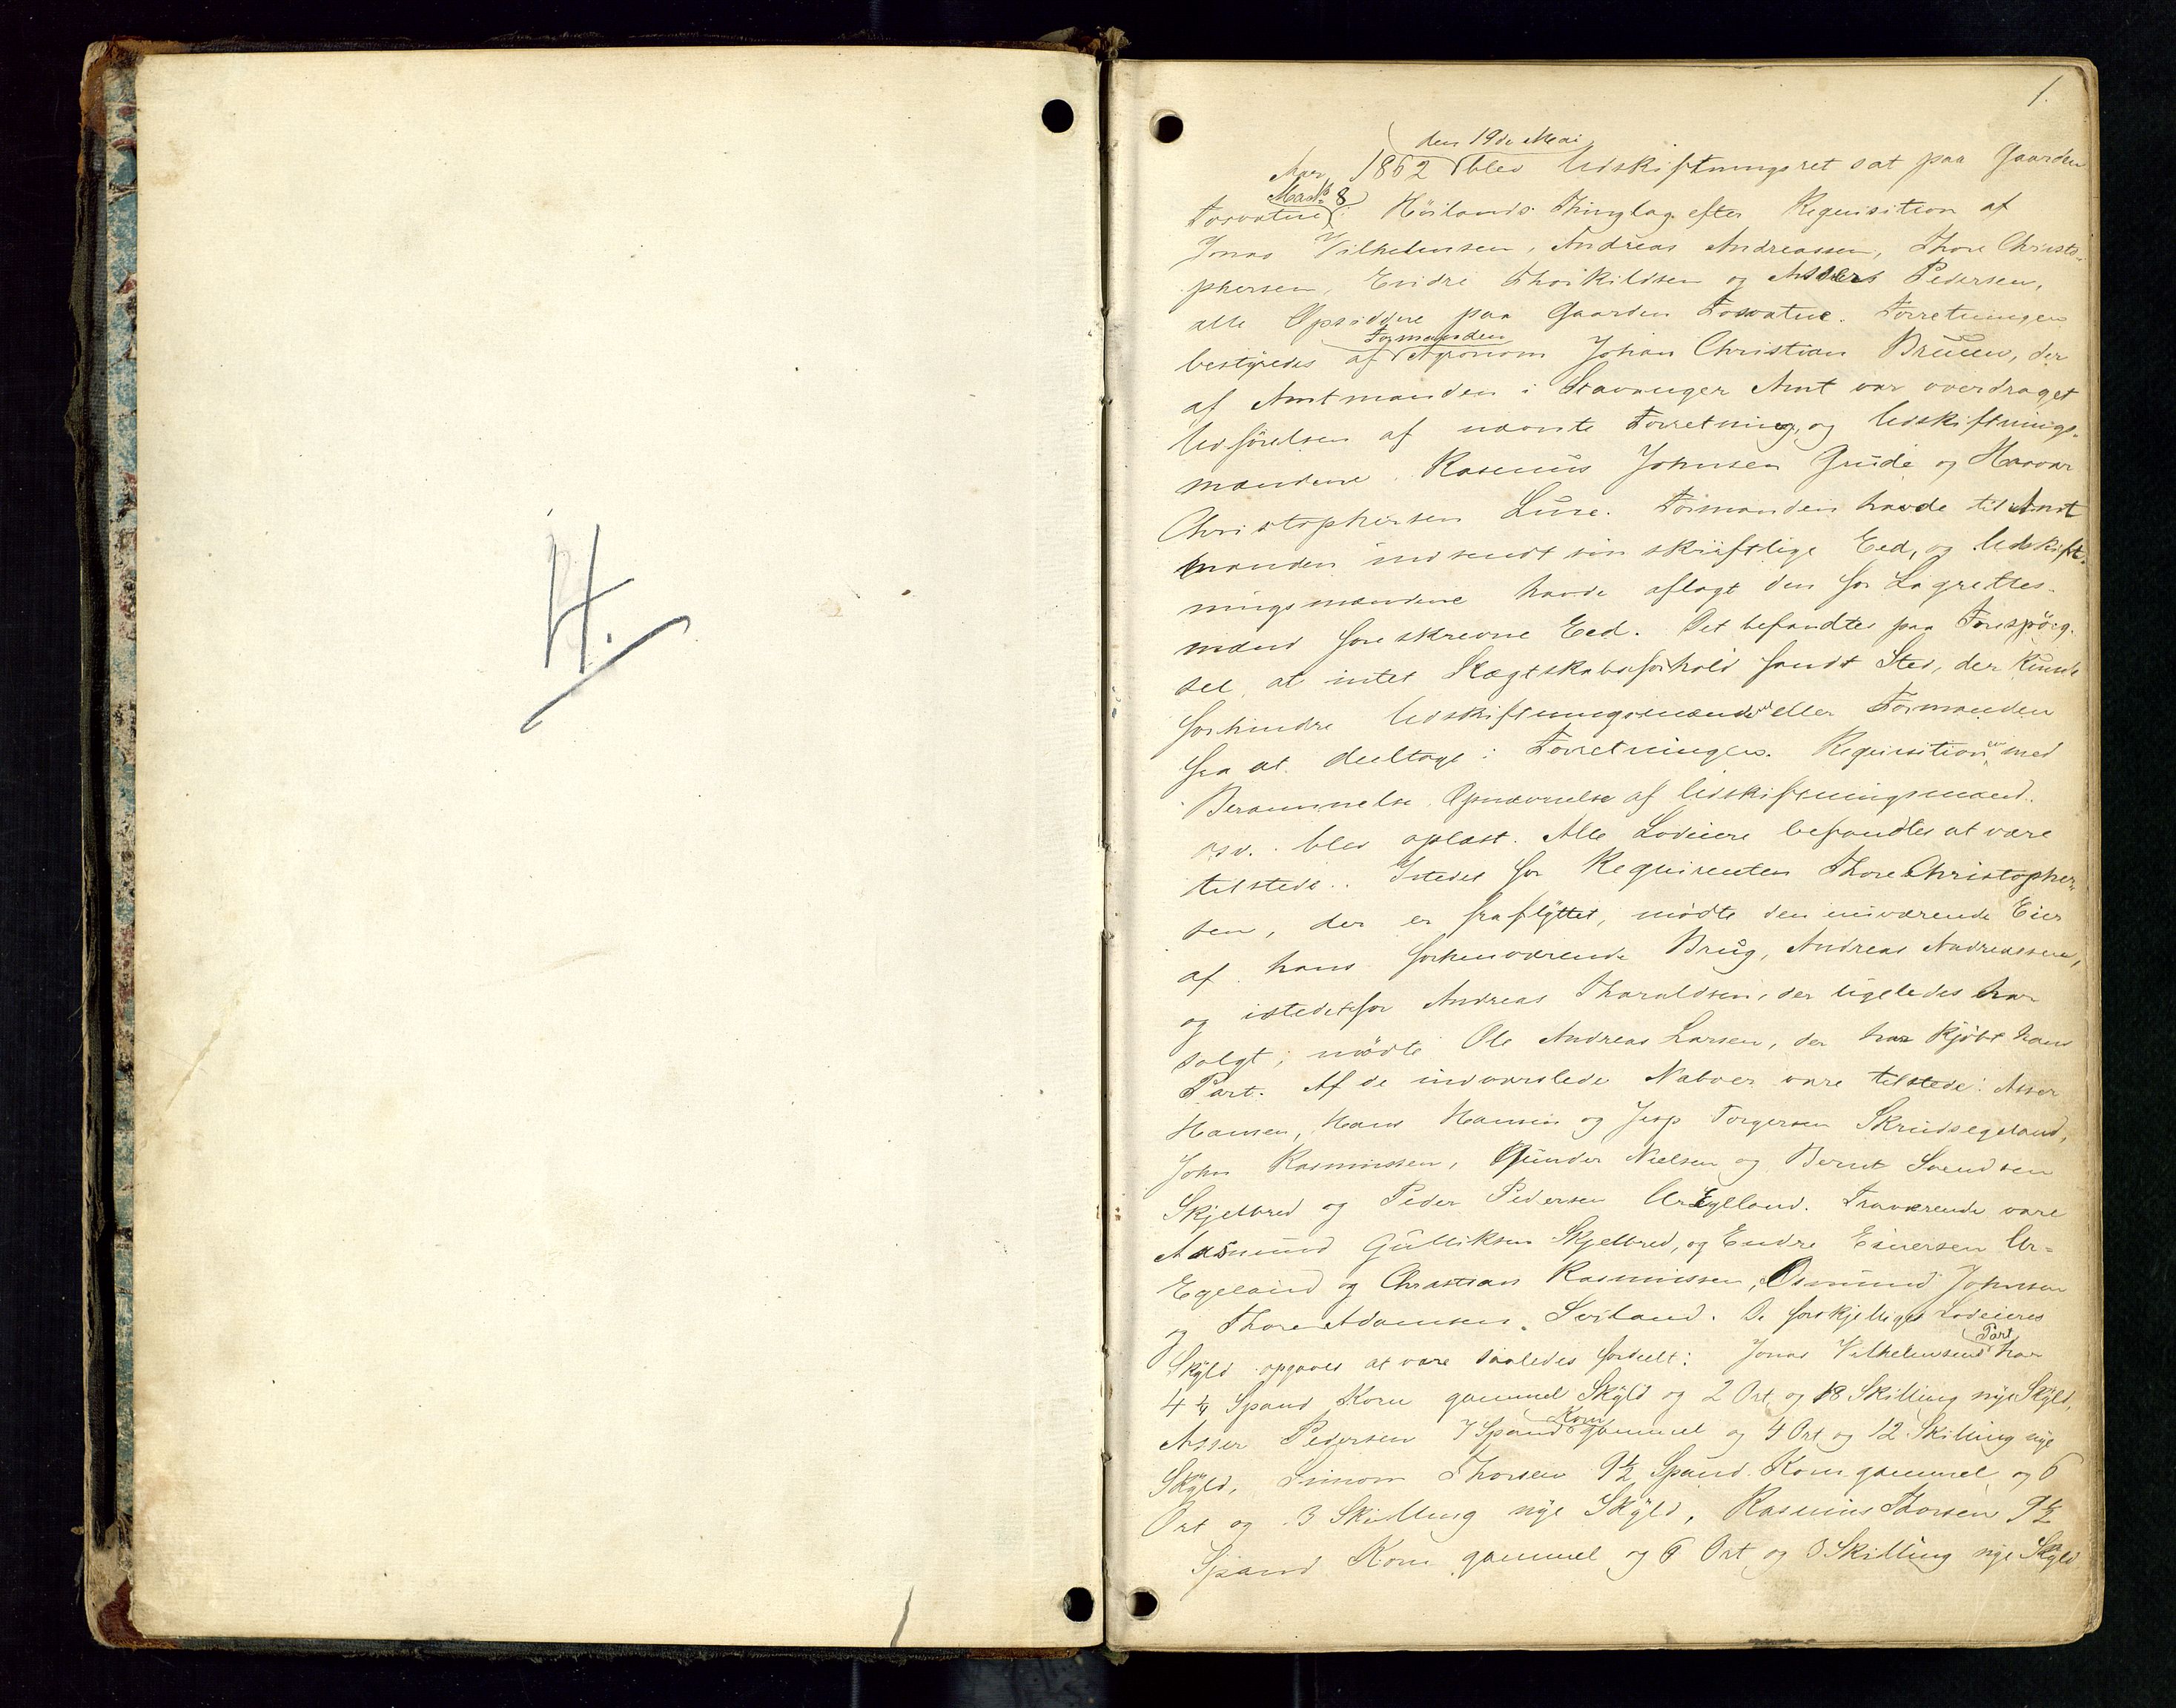 H.
1.
den 19de Mai
Aar 1862 blev Udskiftningsret sat paa Gaarden
Mat № 8
Fosvatne i Höilands Thinglag efter Requisition af
Jonas Vilhelmsen, Andreas Andreassen, Thore Christo-
phersen, Endre Thorkildsen og Assers Pedersen,
alle Opsiddere paa Gaarden Fosvatne. Forretningen
Formanden
bestyredes af Agronom Johan Christian Bruun, der
af Amtmanden i Stavanger Amt var overdraget
Udförelsen af nævnte Forretning, og Udskiftnings-
mændene Rasmus Johnsen Grude og Haavar
Christophersen Lure. Formanden havde til Amt
manden indsendt sin skriftlige Eed, og Udskift-
ningsmændene havde aflagt den for Lagrettes-
mænd foreskrevne Eed. Det befandtes paa Forespörg-
sel, at intet Slægtskabsforhold fandt Sted, der kunde
forhindre Udskiftningsmændene eller Formanden
fra at deeltage i Forretningen. Requisitionen med
Berammelse, Opnævnelse af Udskiftningsmænd
osv. blev oplæst. Alle Lodeiere befandtes at være
tilstede. Istedet for Requirenten Thore Christopher-
sen, der er fraflyttet, mödte den nuværende Eier
af hans forhenværende Brug, Andreas Andreassen,
og istedetfor Andreas Tharaldsen, der ligeledes har
solgt, mödte Ole Andreas Larsen, der har kjöbt hans
Part. Af de indvarslede Naboer vare tilstede: Asser
Hansen, Hans Hansen og Jesp Torgersen Skrudsegeland,
John Rasmussen, Gunder Nielsen og Bernt Svendsen
Skjelbred og Peder Pedersen Ur Egeland. Fraværende vare
Aasmund Gulliksen Skjelbred, og Endre Einersen Ur-
Egeland og Christian Rasmussen, Osmund Johnsen
og Thore Adamsen Sviland. De forskjellige Lodeieres
Part
Skyld opgaves at være saaledes fordeelt: Jonas Vilhelmsens har
4 ¼ Spand Korn gammel Skyld og 2 Ort og 18 Skilling nye Skyld,
Korn
Asser Pedersen 7 Spand gammel og 4 Ort og 12 Skilling nye
Skyld, Simon Thorsen 9½ Spand Korn gammel og 6
Ort og 3 Skilling nye Skyld, Rasmus Thorsen 9½
Spand Korn gammel og 6 Ort og 3 Skilling nye Skyld